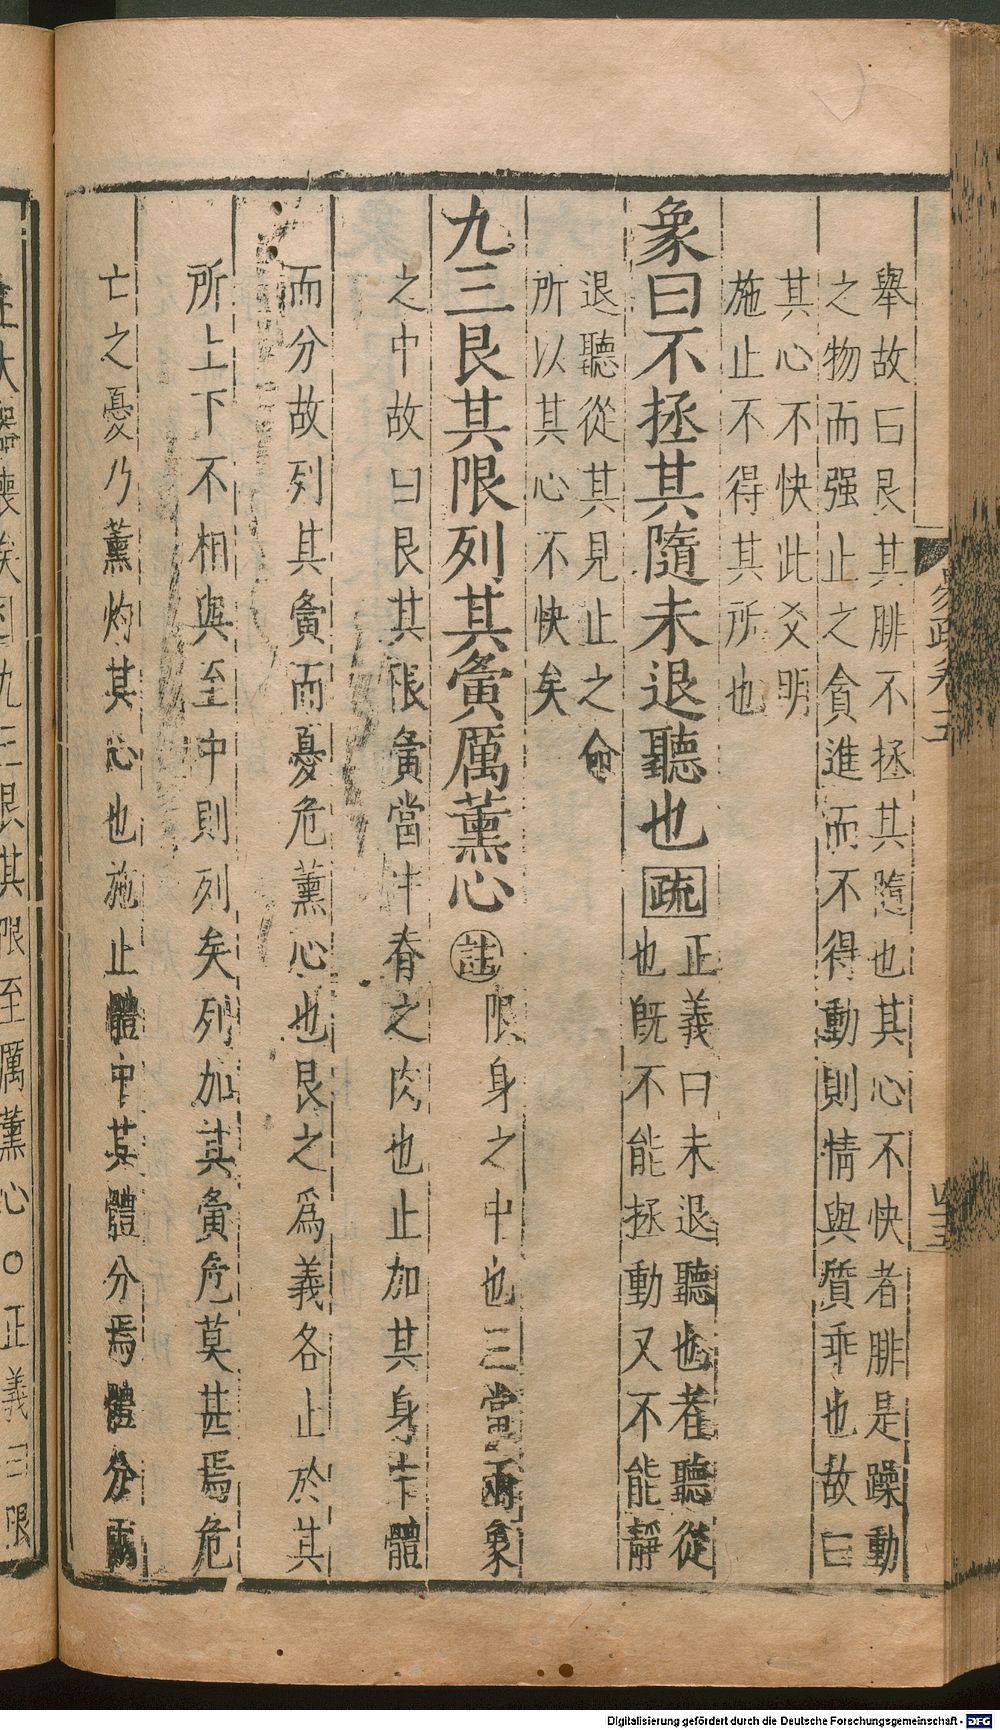 舉故曰艮其腓不拯其隨也其心不快者腓是躁動
之物而强止之貪進而不得動則情與質乖也故曰
其心不快此爻明
施止不得其所也
象曰不拯其隨未退聽也疏正義曰未退聽也者聽從
也旣不能拯動又不能靜
退聽從其見止之命
所以其心不快矣
九三艮其限列其夤厲薰心註限身之中也三當兩象
之中故曰艮其限夤當中脊之肉也止加其身中體
而分故列其夤而憂危薰心也艮之爲義各止於其
所上下不相與至中則列矣列加其夤危莫甚焉危
亡之憂乃薰灼其心也施止體中其體分焉體分兩
主大器喪矣疏九三艮其限至厲薰心○正義曰限
易疏卷五
Digitalisierung gefördert durch die Deutsche Forschungsgemeinschaft - DFG